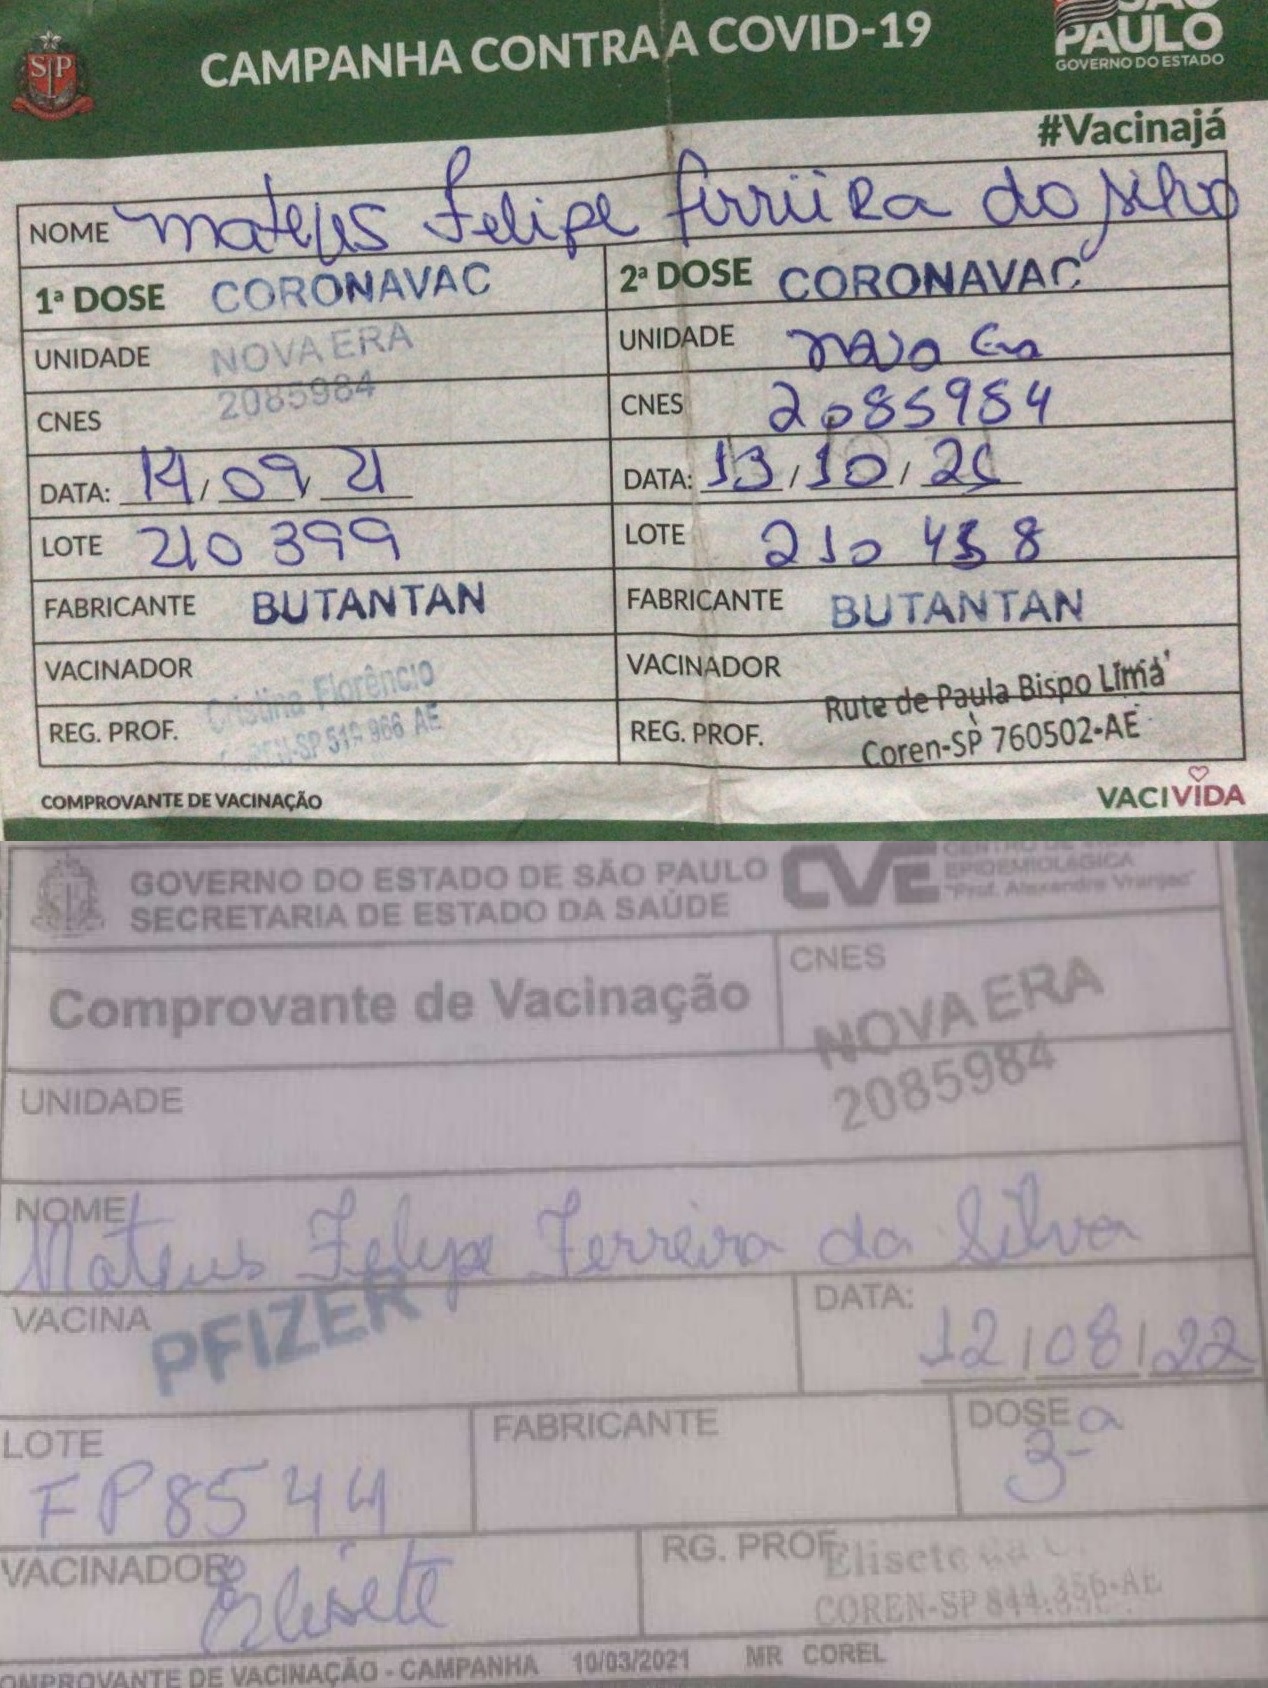 CAMPANHA CONTRA A COVID-19
SÃO PAULO
GOVERNO DO ESTADO
#Vacinajá
NOME Mateus Felipe Ferreira da Silva
1ª DOSE CORONAVAC
2ª DOSE CORONAVAC
UNIDADE NOVA ERA
UNIDADE Nova Era
CNES 2085984
CNES 2085984
DATA: 14/09/21
DATA: 13/10/21
LOTE 210399
LOTE 210438
FABRICANTE BUTANTAN
FABRICANTE BUTANTAN
VACINADOR Cristina Florêncio
VACINADOR Rute de Paula Bispo Lima
REG. PROF. COREN-SP 519 966 AE
REG. PROF. Coren-SP 760502-AE
COMPROVANTE DE VACINAÇÃO
VACIVIDA
GOVERNO DO ESTADO DE SÃO PAULO
SECRETARIA DE ESTADO DA SAÚDE
CVE
EPIDEMIOLÓGICA
"Prof. Alexandre Vranjac"
Comprovante de Vacinação
CNES
NOVA ERA
2085984
UNIDADE
NOME
Mateus Felipe Ferreira da Silva
VACINA PFIZER
DATA: 12/08/22
LOTE
FP8544
FABRICANTE
DOSE
3ª
VACINADOR Elisete
RG. PROF. Elisete
COREN-SP 844.356-AE
COMPROVANTE DE VACINAÇÃO - CAMPANHA 10/03/2021 MR COREL